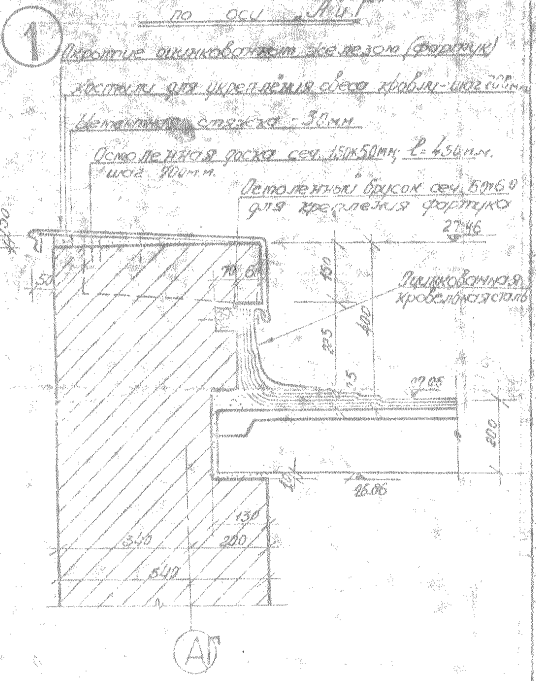 1
по оси "А и Г"
Покрытие оцинкованным железом (фартук)
костыли для укрепления свеса кровли-шаг 700мм
Цементная стяжка - 30мм
Осмоленная доска сеч. 150×50мм, ℓ=450м.м.
шаг 700м.м.
Осмоленный брусок сеч.
для крепления фартука
27.46
Оцинкованная
кровельная сталь
50
70 60
150
400
27.05
200
26.86
130
340
200
540
АГ